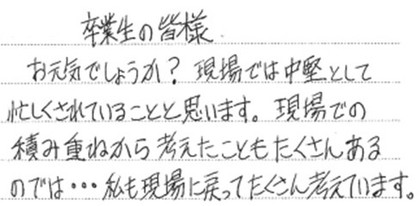 卒業生の皆様
お元気でしょうか？現場では中堅として
忙しくされていることと思います。現場での
積み重ねから考えたこともたくさんある
のでは・・・私も現場に戻ってたくさん考えています。